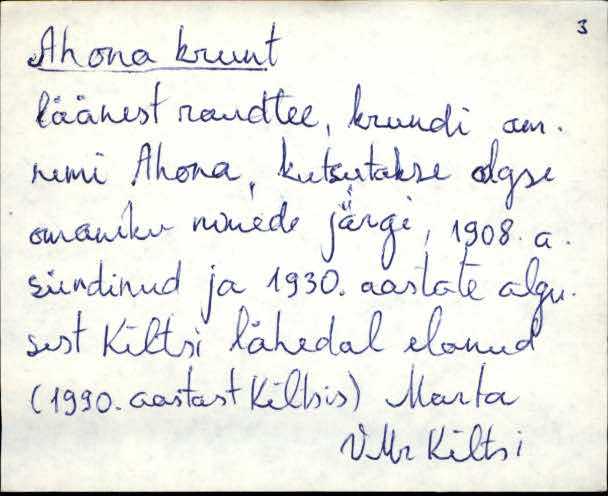 3
Ahona krunt
läänest raudtee, krundi am.
nimi Ahona, kutsutakse algse
omaniku nimede järgi, 1908. a.
sündinud ja 1930. aastate algu-
sest Kiltsi lähedal elanud
(1990. aastast Kiltsis) Marta
VMr Kiltsi